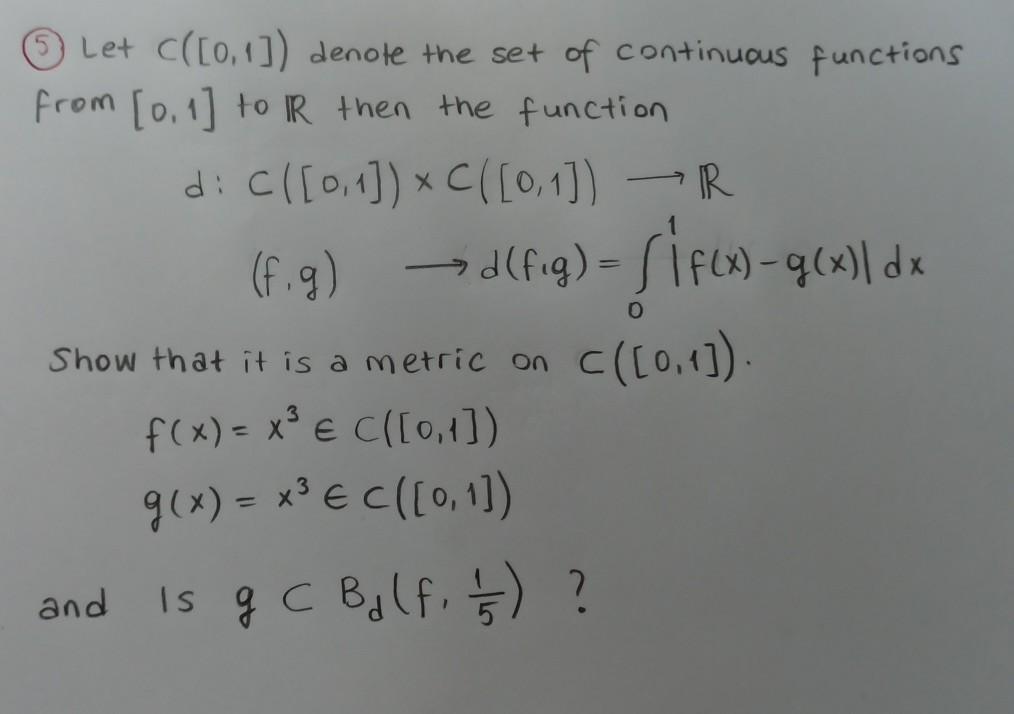 ⑤ Let C([0,1]) denote the set of continuous functions
from [0,1] to ℝ then the function
d: C([0,1]) × C([0,1]) → ℝ
(f,g) → d(f,g) = ∫₀¹ |f(x) - g(x)| dx
Show that it is a metric on C([0,1]).
f(x) = x³ ∈ C([0,1])
g(x) = x³ ∈ C([0,1])
and Is g ⊂ B_d(f, 1/5) ?